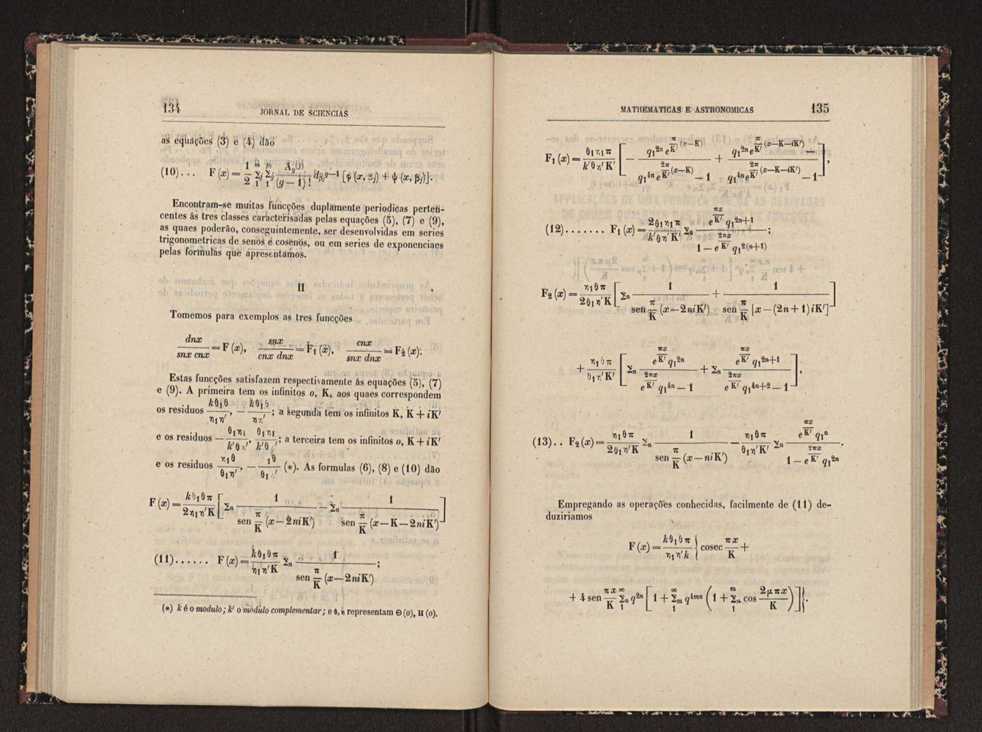 134
JORNAL DE SCIENCIAS
as equações (3) e (4) dão
(10)... F (x) =
Encontram-se muitas funcções duplamente periodicas perten-
centes ás tres classes caracterisadas pelas equações (5), (7) e (9),
as quaes poderão, conseguintemente, ser desenvolvidas em series
trigonometricas de senos e cosenos, ou em series de exponenciaes
pelas formulas que apresentamos.
II
Tomemos para exemplos as tres funcções
dnx / snx cnx = F (x), snx / cnx dnx = F₁ (x), cnx / snx dnx = F₂ (x).
Estas funcções satisfazem respectivamente ás equações (5), (7)
e (9). A primeira tem os infinitos o, K, aos quaes correspondem
os residuos ; a segunda tem os infinitos K, K + iK′
e os residuos ; a terceira tem os infinitos o, K + iK′
e os residuos (*). As formulas (6), (8) e (10) dão
F (x) = kθ₁θπ / 2η₁η′K [ Σₙ 1 / sen π/K (x − 2niK′) − Σₙ 1 / sen π/K (x − K − 2niK′) ]
(11)...... F (x) = kθ₁θπ / η₁η′K Σₙ 1 / sen π/K (x − 2niK′) ;
(*) k é o modulo; k′ o modulo complementar; e θ, η representam Θ (o), H (o).
MATHEMATICAS E ASTRONOMICAS
135
F₁ (x) =
(12)....... F₁ (x) = 2θ₁η₁π / k′θη′K′ Σₙ e^(πx/K′) q₁^(2n+1) / 1 − e^(2πx/K′) q₁^(2(n+1)) ;
F₂ (x) = η₁θπ / 2θ₁η′K [ Σₙ 1 / sen π/K (x − 2niK′) + 1 / sen π/K [x − (2n + 1) iK′] ]
+ η₁θπ / θ₁η′K′ [ Σₙ e^(πx/K′) q₁^(2n) / e^(2πx/K′) q₁^(4n) − 1 + Σₙ e^(πx/K′) q₁^(2n+1) / e^(2πx/K′) q₁^(4n+2) − 1 ],
(13).. F₂ (x) = η₁θπ / 2θ₁η′K Σₙ 1 / sen π/K (x − niK′) − η₁θπ / θ₁η′K′ Σₙ e^(πx/K′) q₁ⁿ / 1 − e^(2πx/K′) q₁^(2n) .
Empregando as operações conhecidas, facilmente de (11) de-
duziriamos
F (x) = kθ₁θπ / η₁η′k { cosec πx/K +
+ 4 sen πx/K Σₙ q^(2n) [ 1 + Σₘ q^(4mn) ( 1 + Σ cos 2μπx/K ) ] }.